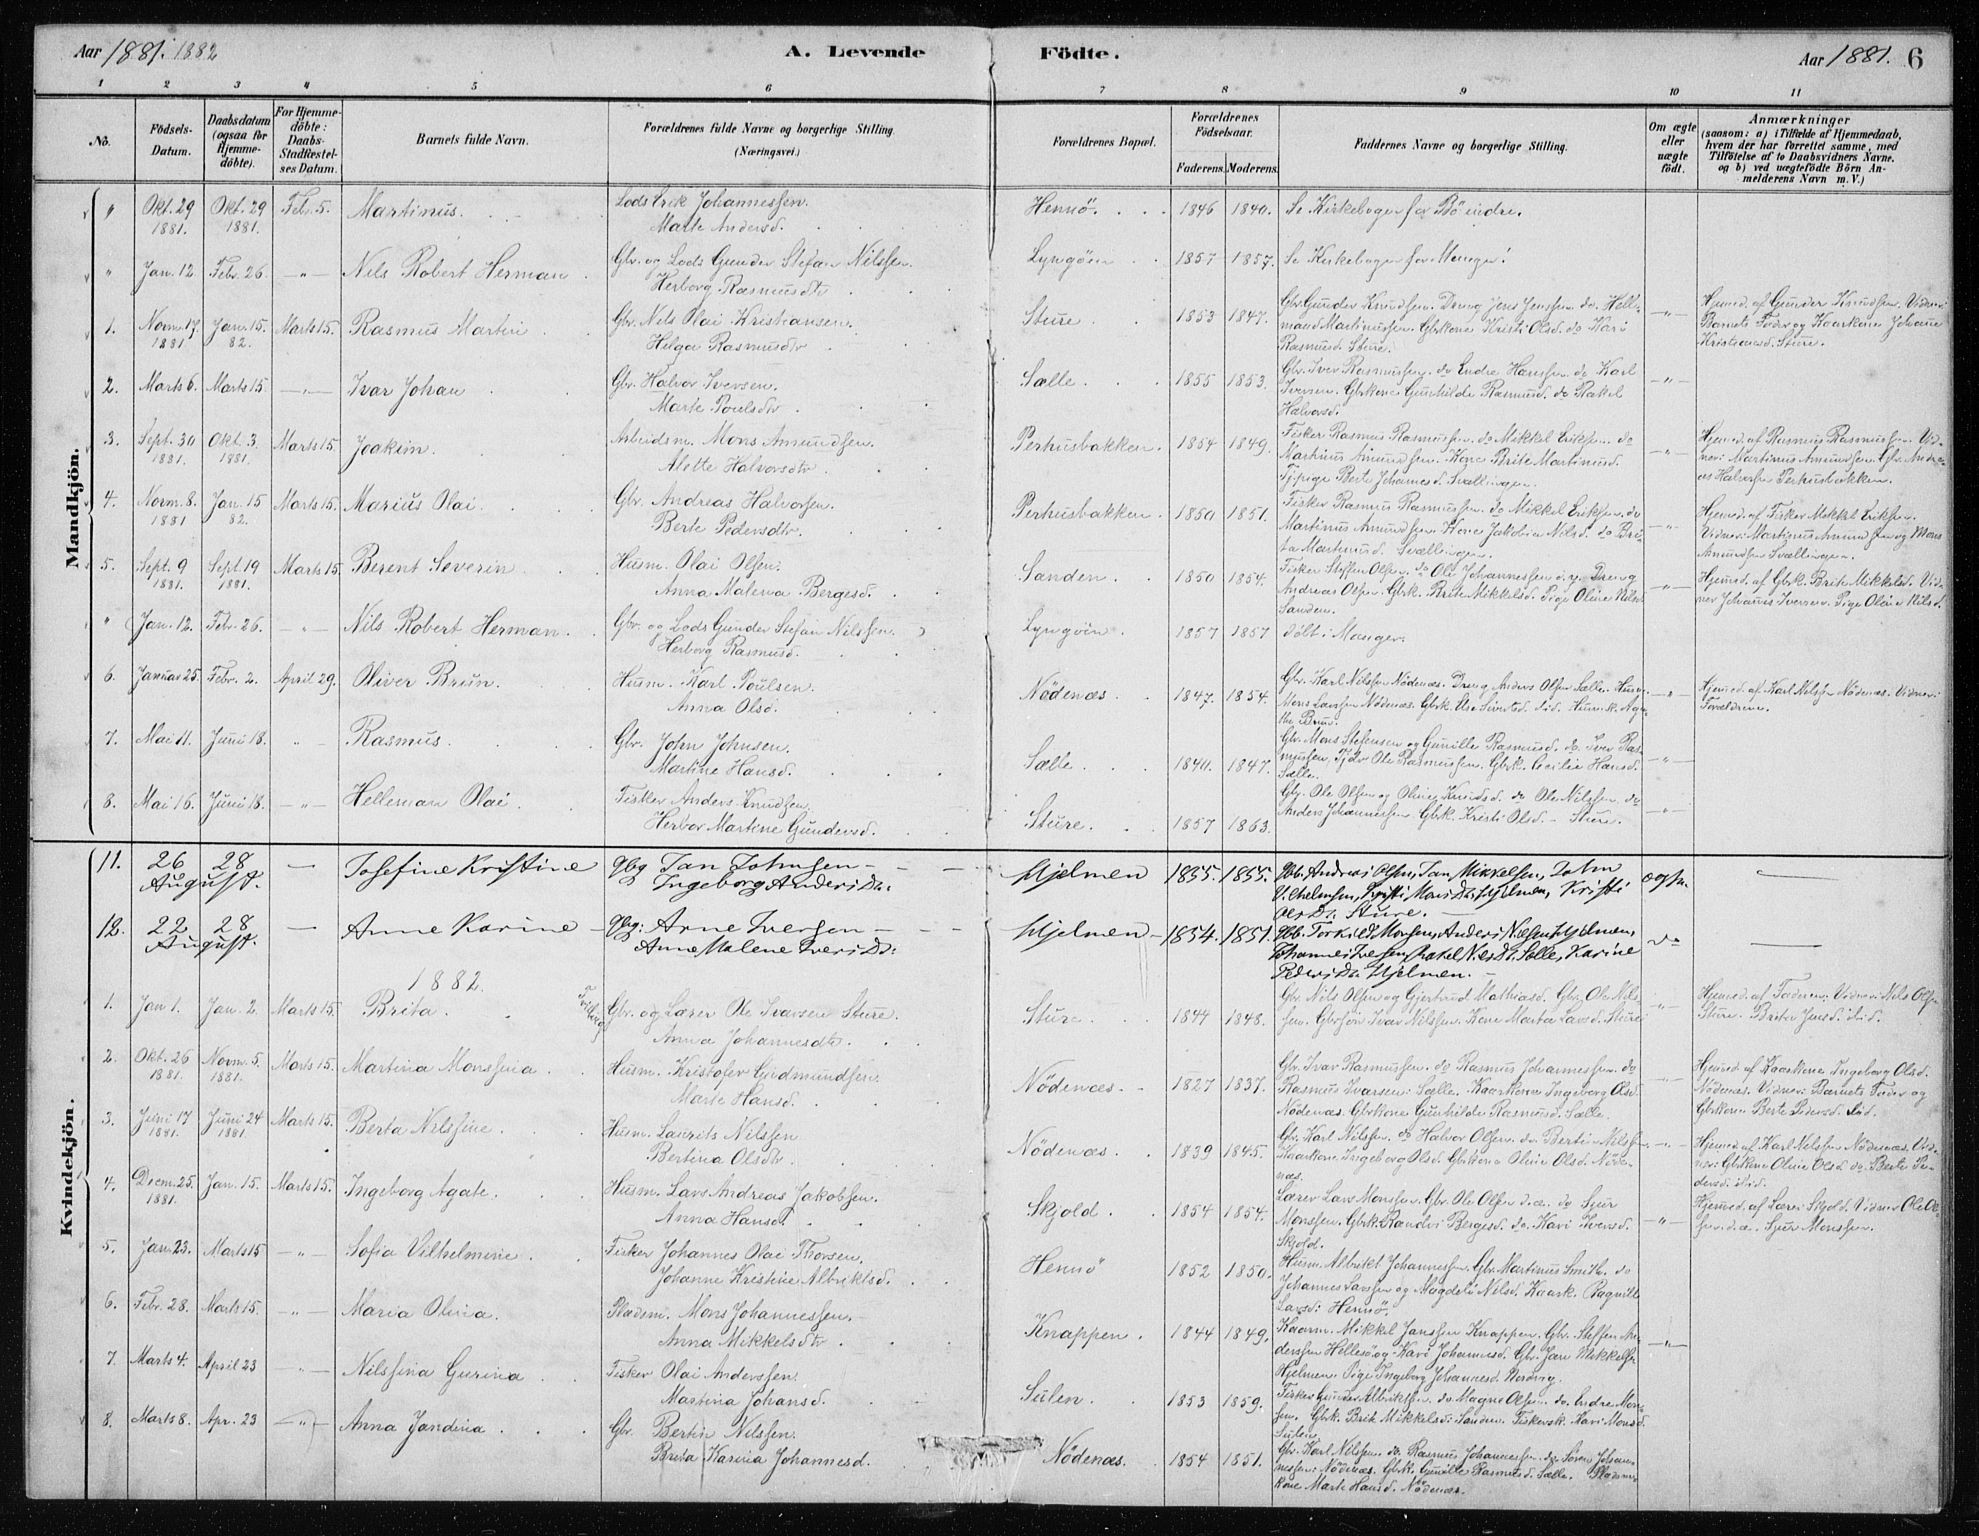 Aar 1881. 1882
A. Levende Födte.
Aar 1881. 6
1 2 3 4 5 6 7 8 9 10 11
No.
Födsels-Datum.
Daabsdatum (ogsaa for Hjemmedöbte).
For Hjemmedöbte: Daabs-Stadfæstelses Datum.
Barnets fulde Navn.
Forældrenes fulde Navne og borgerlige Stilling. (Næringsvei.)
Forældrenes Bopæl.
Forældrenes Födselsaar.
Faderens. Moderens.
Faddernes Navne og borgerlige Stilling.
Om ægte eller uægte födt.
Anmærkninger
(saasom: a) i Tilfælde af Hjemmedaab, hvem der har forrettet samme, med Tilföielse af to Daabsvidners Navne, og b) ved uægtefödte Börn Anmelderens Navn m. V.)
Mandkjön.
" Okt. 29 1881. Okt. 29 1881. Febr. 5. Martinus. Lods Erik Johannessen. Marte Andersd. Hennö. 1846 1840. Se Kirkebogen for Bö indre.
" Jan. 12. Febr. 26. —"— Nils Robert Herman. Gbr. og Lods Gunder Stefan Nilssen. Herborg Rasmusdtr. Lyngöin 1857 1857. Se Kirkebogen for Manger!
1. Novm. 17. 1881 Jan. 15. 82. Marts 15. Rasmus Martin Gbr. Nils Olai Kristiansen. Helga Rasmusdtr. Sture 1853 1847. Gbr. Gunder Knudsen. Dreng Jens Jenssen. do Hellmand Martinussen. Gbrkone Kristi Olsd. do Kari Rasmusd. Sture. —"— Hjemd. af Gunder Knudsen. Vidner: Barnets Fader og Kaarkone Johanne Kristensd. Sture.
2. Marts 6. Marts 15 —"— Ivar Johan Gbr. Halvor Iversen. Marte Poulsdtr. Sælle. 1855 1853. Gbr. Iver Rasmussen. do Endre Hanssen. do Karl Iversen. Gbrkone Gunhilde Rasmusd. do Rakel Halvorsd. —"—
3. Sept. 30 1881. Okt. 3. 1881. Marts 15. Joakim. Arbeidsm. Mons Amundsen. Alette Halvorsdtr. Perhusbakken. 1854 1849. Fisker Rasmus Rasmussen. do Mikkel Eriksen. do Martinus Amundsen. Kone Brite Martinusd. Tjpige Berte Johannesd. Svællingen. —"— Hjemd. af Rasmus Rasmussen. Vidner: Martinus Amundsen. Gbr. Andreas Halvorsen Perhusbakken.
4. Novm. 8. 1881 Jan. 15 82. Marts 15. Marius Olai. Gbr. Andreas Halvorsen. Berte Pedersdtr. Perhusbakken. 1850 1851. Fisker Rasmus Rasmussen. do Mikkel Eriksen. do Martinus Amundsen. Kone Jakobia Nilsd. do Brita Martinusd. Svællingen. —"— Hjemd. af Fisker Mikkel Eriksen. Vidner: Martinus Amundsen og Mons Amundsen Svællingen.
5. Sept. 9 1881. Sept. 19 1881. Marts 15. Berent Severin Husm. Olai Olsen. Anna Malena Bergesd. Sanden. 1850 1854. Fisker Steffen Olsen. do Ole Johannessen d.y. Dreng Andreas Olsen. Gbrk. Brite Mikkelsd. Pige Oline Nilsd. Sanden. —"— Hjemd. af Gbrk. Brite Mikkelsd. Vidner Johannes Iversen. Pige Oline Nilsd.
" (Jan. 12. Febr. 26. —"— Nils Robert Herman. Gbr. og Lods Gunder Stefan Nilssen. Herborg Rasmusd.) Lyngöin. 1857 1857 Døbt i Manger.
6. Januar 25. Febr. 2. April 29. Oliver Brun. Husm. Karl Poulsen. Anna Olsd. Nödenæs 1847. 1854. Gbr. Karl Nilssen Nödenæs. Dreng Anders Olsen Sælle. Husm. Mons Larssen Nödenæs. Gbrk. Sivertsd. ibid. Husmk. Agathe Brun. —"— Hjemd. af Karl Nilssen Nödenæs. Vidner: Forældrene.
7. Mai 11. Juni 18. " Rasmus. Gbr. John Johnsen. Martine Hansd. Sælle 1840. 1847. Gbr. Mons Stefensen og Gunille Rasmusd. do. Iver Rasmussen. Ole Rasmussen. Gbrk. Cecilie Hansd. Sælle. —"—
8. Mai 16. Juni 18. —"— Helleman Olai Fisker Anders Knudsen. Herbor Martine Gundersd. Sture. 1857 1863. Gbr. Ole Olsen og Oline Knudsd. do Ole Nilssen. do Anders Johannessen. Gbrk. Kristi Olsd. - Sture. —"—
Kvindekjön.
11. 26 August. 28 — Josefine Kristine Gbg Jan Johnsen — Ingeborg Anders Dr. Hjelmen 1855. 1855. Gbb. Anders Olsen, Jan Mikkelsen, John Vilhelmsen, Kristi Mons Dr. Hjelmen, Kristi Ols Dr. Sture. —
12. 22 August. 28 — Anne Karine — Gbg: Arne Iversen — Anne Malene Ivers Dr: Hjelmen — 1854. 1851. Gbb. Torkild Monsen, Anders Nilsen Hjelmen, Johannes Iversen, Rakel Nils Dr. Sælle, Karine Peders Dr. Hjelmen. — do —
1882.
1. Jan 1. Jan. 2. Marts 15. Brita. Tvilling Gbr. og Lærer Ole Ivarsen Sture. Anna Johannesdtr. Sture. 1844 1848. Gbr. Nils Olsen og Gjertrud Mathiasd. Gbr. Ole Nilssen. Gbrsön Ivar Nilssen. Kone Marta Larsd. Sture. —"— Hjemd. af Faderen: Vidner: Nils Olsen Sture. Brita Jensd. ibid.
2. Okt. 26 1881. Novm. 5. 1881. Marts 15. Martina Monssina. Husm. Kristofer Gudmundsen. Marte Hansd. Nödenæs. 1827 1837. Gbr. Ivar Rasmussen. do Rasmus Johannessen. do Rasmus Ivarsen: Sælle. Kaarkone Ingeborg Olsd. Nödenæs. Gbrkone Gunhilde Rasmusd. Sælle. Hjemd. af Kaarkone Ingeborg Olsd. Nödenæs. Vidner: Barnets Fader og Gbrkone Berte Pedersd. ibid.
3. Juni 17 1881. Juni 24 1881. Marts 15. Berta Nilssine. Husm. Laurits Nilssen Bertina Olsdtr. Nödenæs. 1839 1845. Gbr. Karl Nilssen. do Halvor Olsen. do Bertin Nilssen Kaarkone Ingeborg Olsd. Gbrkone Oline Olsd. Nödenæs. —"— Hjemd. af Karl Nilssen Nödenæs. Vidner: Gbrkone Oline Olsd. do. Berte Pedersd. ibid.
4. Decm. 25. 1881. Jan. 15. Marts 15. Ingeborg Agate. Husm. Lars Andreas Jakobsen. Anna Hansd. Skjold. 1854 1854. Lærer Lars Monssen. Gbr. Ole Olsen d.æ. do Sjur Monssen. Gbrk. Randvi Bergesd. do. Kari Iversd. Skjold. —"— Hjemd. af Lærer Skjold. Vidner Ole Olsen d.æ. Sjur Monssen.
5. Jan. 23. Marts 15 —"— Sofia Vilhelmine. Fisker Johannes Olai Thorsen. Johanne Kristine Albriktsd. Hennö 1852 1850. Husm. Albrikt Johannessen. Gbr. Martinus Smith. do Johannes Larssen og Magdeli Nilsd. Kaark. Ragnille Larsd: Hennö.
6. Febr. 28. Marts 15. —"— Maria Olina. Pladsm. Mons Johannessen. Anna Mikkelsdtr. Knappen. 1844 1849. Kaarm. Mikkel Janssen Knappen. Gbr. Steffen Anderssen Hellesö og Kari Johannesd. Gbr. Jan Mikkelsen Hjelmen. Pige Ingeborg Johannesd. —"—
7. Marts 4. April 23 —"— Nilssina Gurina. Fisker Olai Anderssen. Martina Johansd. Sulen. 1853 1859. Fisker Gunder Albriktsen. do Magne Olsen. do. Endre Monssen. Gbrk. Brite Mikkelsd: Sanden. Fiskersk. Kari Monsd. Sulen.
8. Marts 8. Apr. 23 —"— Anna Jandina Gbr. Bertin Nilssen. Berta Karina Johannesd. Nödenæs. 1854 1851. Gbr. Karl Nilssen. do. Rasmus Johannessen. do Sören Johannessen: Nödenæs. Gbrk. Gunille Rasmusd. Sælle. Pladsmkone Marte Hansd. Nödenæs.